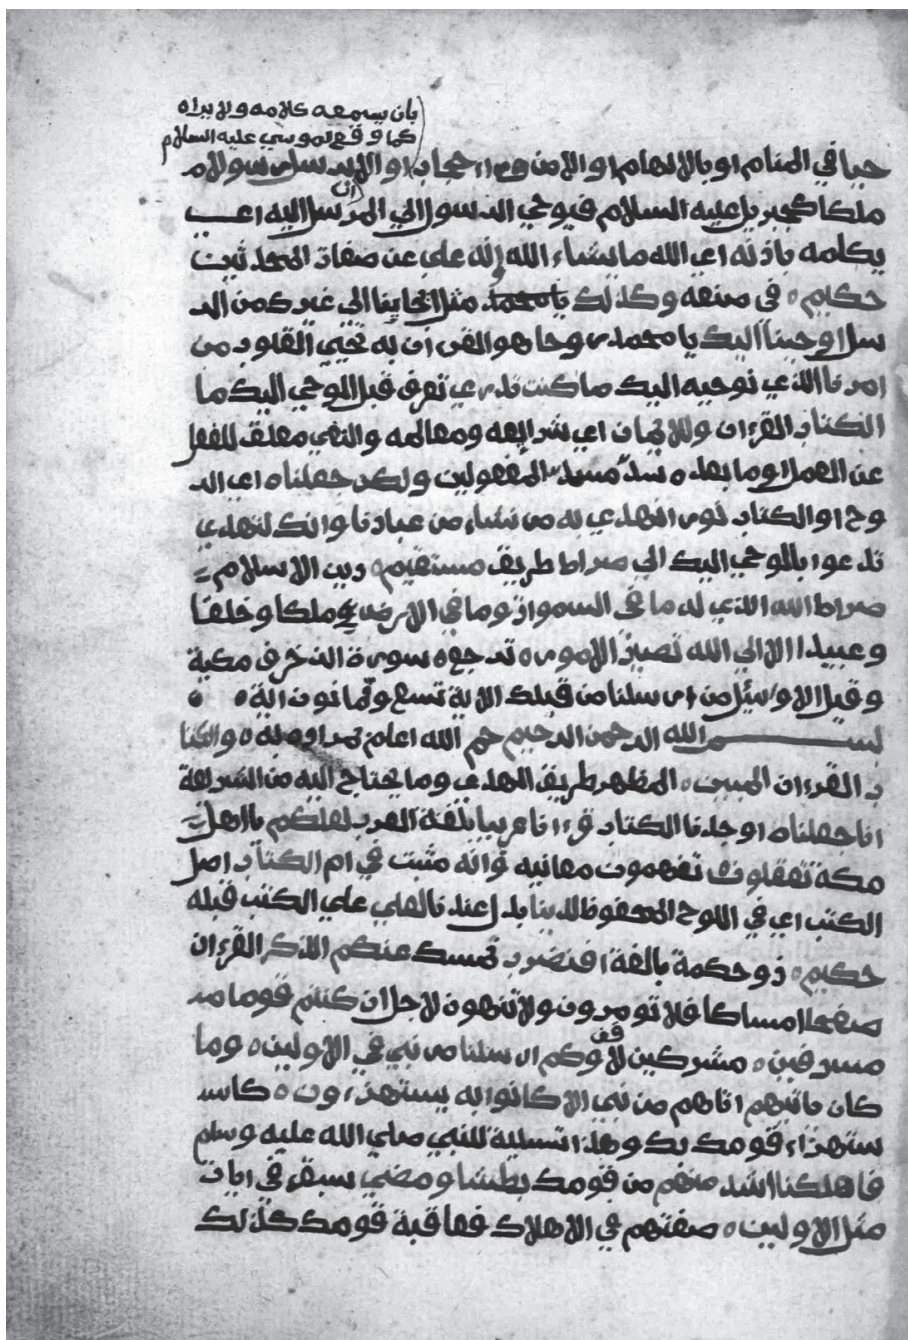 بان يسمعه كلامه ولا يراه
كما وقع لموسي عليه السلام
حيا في المنام او بالالهام او الا من وراء حجاب او الا ان يرسل رسولا م
ملكا كجبريل عليه السلام فيوحي الرسول الي المرسل اليه اي
يكلمه باذنه اي الله ما يشاء الله انه علي عن صفات المحدثين
حكيم ه في صنعه وكذلك يا محمد مثل ايحاينا الي غيرك من الر
سل اوحينا اليك يا محمد روحا هو القرءان به تحيي القلوب من
امرنا الذي نوحيه اليك ما كنت تدري تعرف قبل الوحي اليك ما
الكتاب القرءان ولا الايمان اي شرايعه ومعالمه والنفي معلق للفعل
عن العمل او ما بعده سد مسد المفعولين ولكن جعلناه اي الر
وح او الكتاب نورا نهدي به من نشاء من عبادنا وانك لتهدي
تدعوا بالوحي اليك الي صراط طريق مستقيم دين الاسلام
صراط الله الذي له ما في السموات وما في الارض ملكا وخلقا
وعبيدا الا الي الله تصير الامور ه ترجع ه سورة الزخرف مكية
وقيل الا واسئل من ارسلنا من قبلك الاية تسع وثمانون اية ه ه
بسم الله الرحمن الرحيم حم الله اعلم بمراده به ه والكتا
ب القرءان المبين ه المظهر طريق الهدي وما يحتاج اليه من الشريعة
انا جعلناه اوجدنا الكتاب قرءانا عربيا بلغة العرب لعلكم يا اهل
مكة تعقلون تفهمون معانيه وانه مثبت في ام الكتاب اصل
الكتب اي في اللوح المحفوظ لدينا بدل عندنا لعلي علي الكتب قبله
حكيم ه ذو حكمة بالغة افنضرب نمسك عنكم الذكر القرءان
صفحا امساكا فلا تومرون ولا تنهون لاجل ان كنتم قوما مر
مسرفين ه مشركين لا وكم ارسلنا من نبي في الاولين ه وما
كان ياتيهم اتاهم من نبي الا كانوا به يستهزءون ه كاس
ستهزاء قومك بك وهذا تسلية للنبي صلي الله عليه وسلم
فاهلكنا اشد منهم من قومك بطشا ومضي سبق في ايات
مثل الاولين ه صفتهم في الاهلاك فعاقبة قومك كذلك